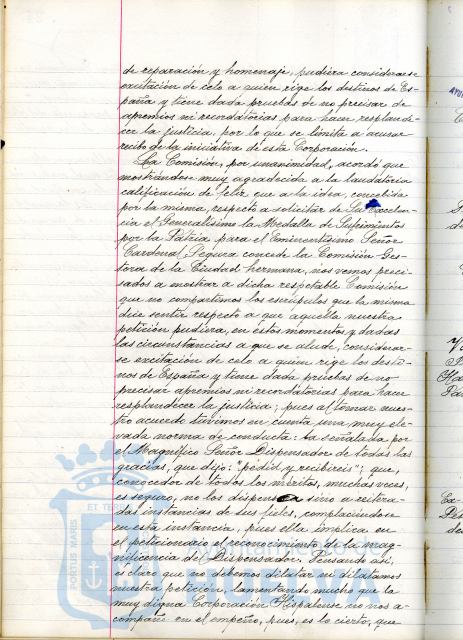 de reparación y homenaje, pudiera considerarse
exitación de celo a quien rige los destinos de Es-
paña y tiene dada pruebas de no precisar de
apremios ni recordatorios para hacer resplande-
cer la justicia, por lo que se limita a acusar
recibo de la iniciativa de esta Corporación.
La Comisión, por unanimidad, acordó que
mostrándose muy agradecida a la laudatoria
calificación de feliz que a la idea, concebida
por la misma, respecto a solicitar de Su Excelen-
cia el Generalísimo la Medalla de Sufrimientos
por la Patria para el Eminentísimo Señor
Cardenal Segura concede la Comisión Ges-
tora de la Ciudad hermana, nos vemos preci-
sados a mostrar a dicha respetable Comisión
que no compartimos los escrúpulos que la misma
dice sentir respecto a que aquella nuestra
petición pudiera, en estos momentos y dadas
las circunstancias a que se alude, considerar-
se excitación de celo a quien rige los desti-
nos de España y tiene dada pruebas de no
precisar apremios ni recordatorios para hacer
resplandecer la justicia; pues al tomar nues-
tro acuerdo tuvimos en cuenta una muy ele-
vada norma de conducta: la señalada por
el Magnífico Señor Dispensador de todas las
gracias, que dijo: "pedid y recibireis"; que,
conocedor de todos los méritos, muchas veces,
es seguro, no los dispensa sino a reitera-
das instancias de sus fieles, complaciéndose
en esta instancia, pues ella implica en
el peticionario el reconocimiento de la mag-
nificencia del Dispensador. Pensando así,
es claro que no debemos dilatar ni dilatamos
nuestra petición, lamentando mucho que la
muy digna Corporación Hispalense no nos a-
compañe en el empeño, pues, es lo cierto, que